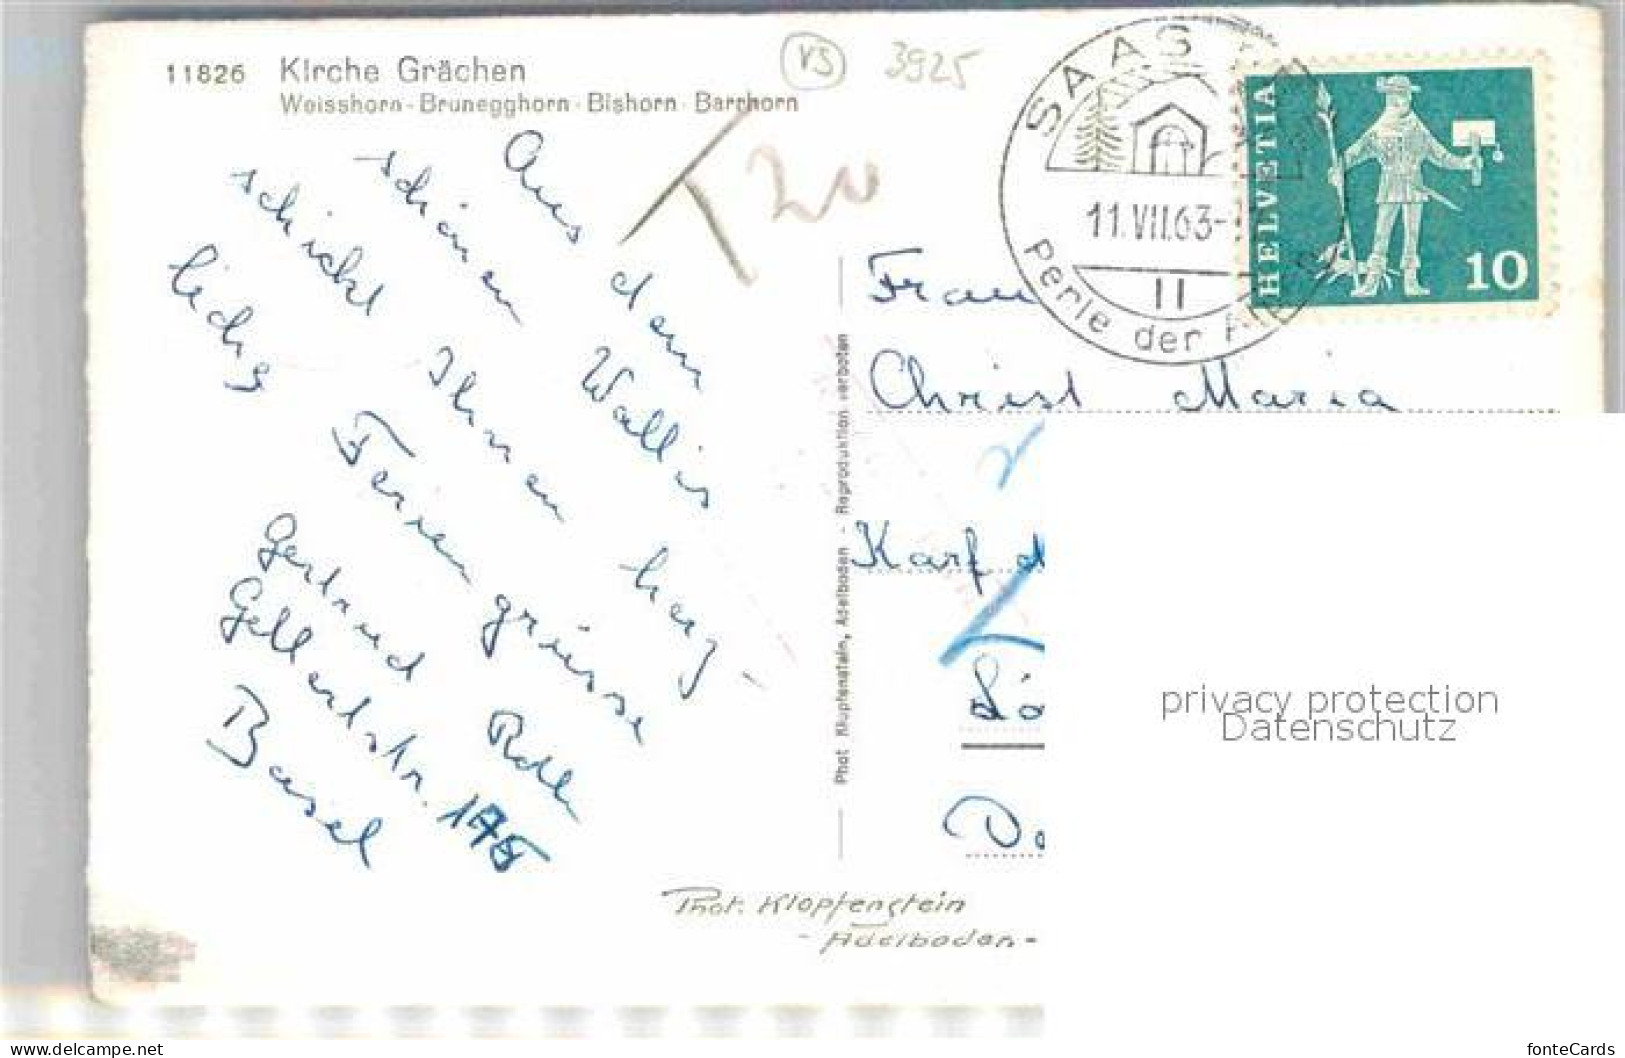 11826 Kirche Grächen
Weisshorn - Brunegghorn - Bishorn - Barrhorn
VS 3925
T 20
Aus dem
schönen Wallis
schickt Ihnen herz-
liche Feriengrüsse
Gertrud Roth
Gellertstr. 175
Basel
Phot Klopfenstein, Adelboden - Reproduktion verboten
SAAS
11.VII.63-
11
Perle der
HELVETIA
10
Frau
Christ Maria
privacy protection
Datenschutz
Phot. Klopfenstein
- Adelboden -
www.delcampe.net
fonteCards